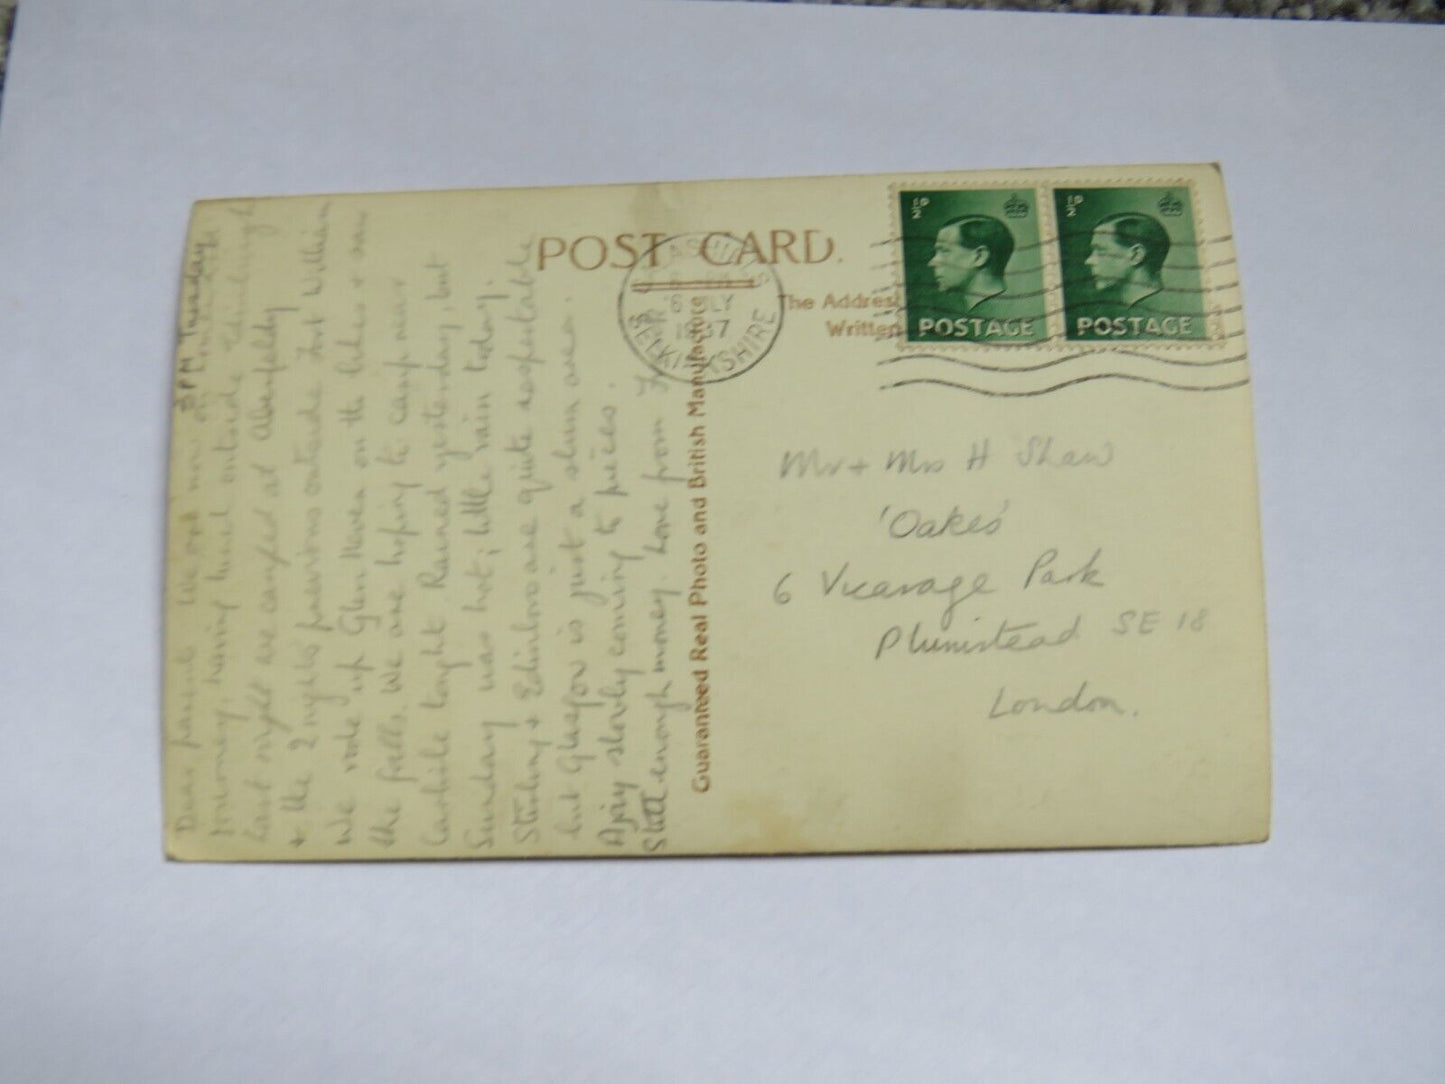 POST CARD.
The Address
Written
Guaranteed Real Photo and British Manufacture
6 JLY
1937
SELKIRKSHIRE
½D
POSTAGE
½D
POSTAGE
Mr + Mrs H Shaw
'Oakes'
6 Vicarage Park
Plumstead SE 18
London.
3 PM Tuesday
Dear parents We are now on
journey, having lunch outside Edinburgh
Last night we camped at Aberfeldy
+ the 2 nights previous outside Fort William
We rode up Glen Neven on the bikes + saw
the falls. We are hoping to camp near
Carlile tonight Rained yesterday, but
Sunday was hot; little rain today.
Stirling + Edinboro are quite respectable
but Glasgow is just a slum area.
slowly coming to pieces.
Still enough money. Love from